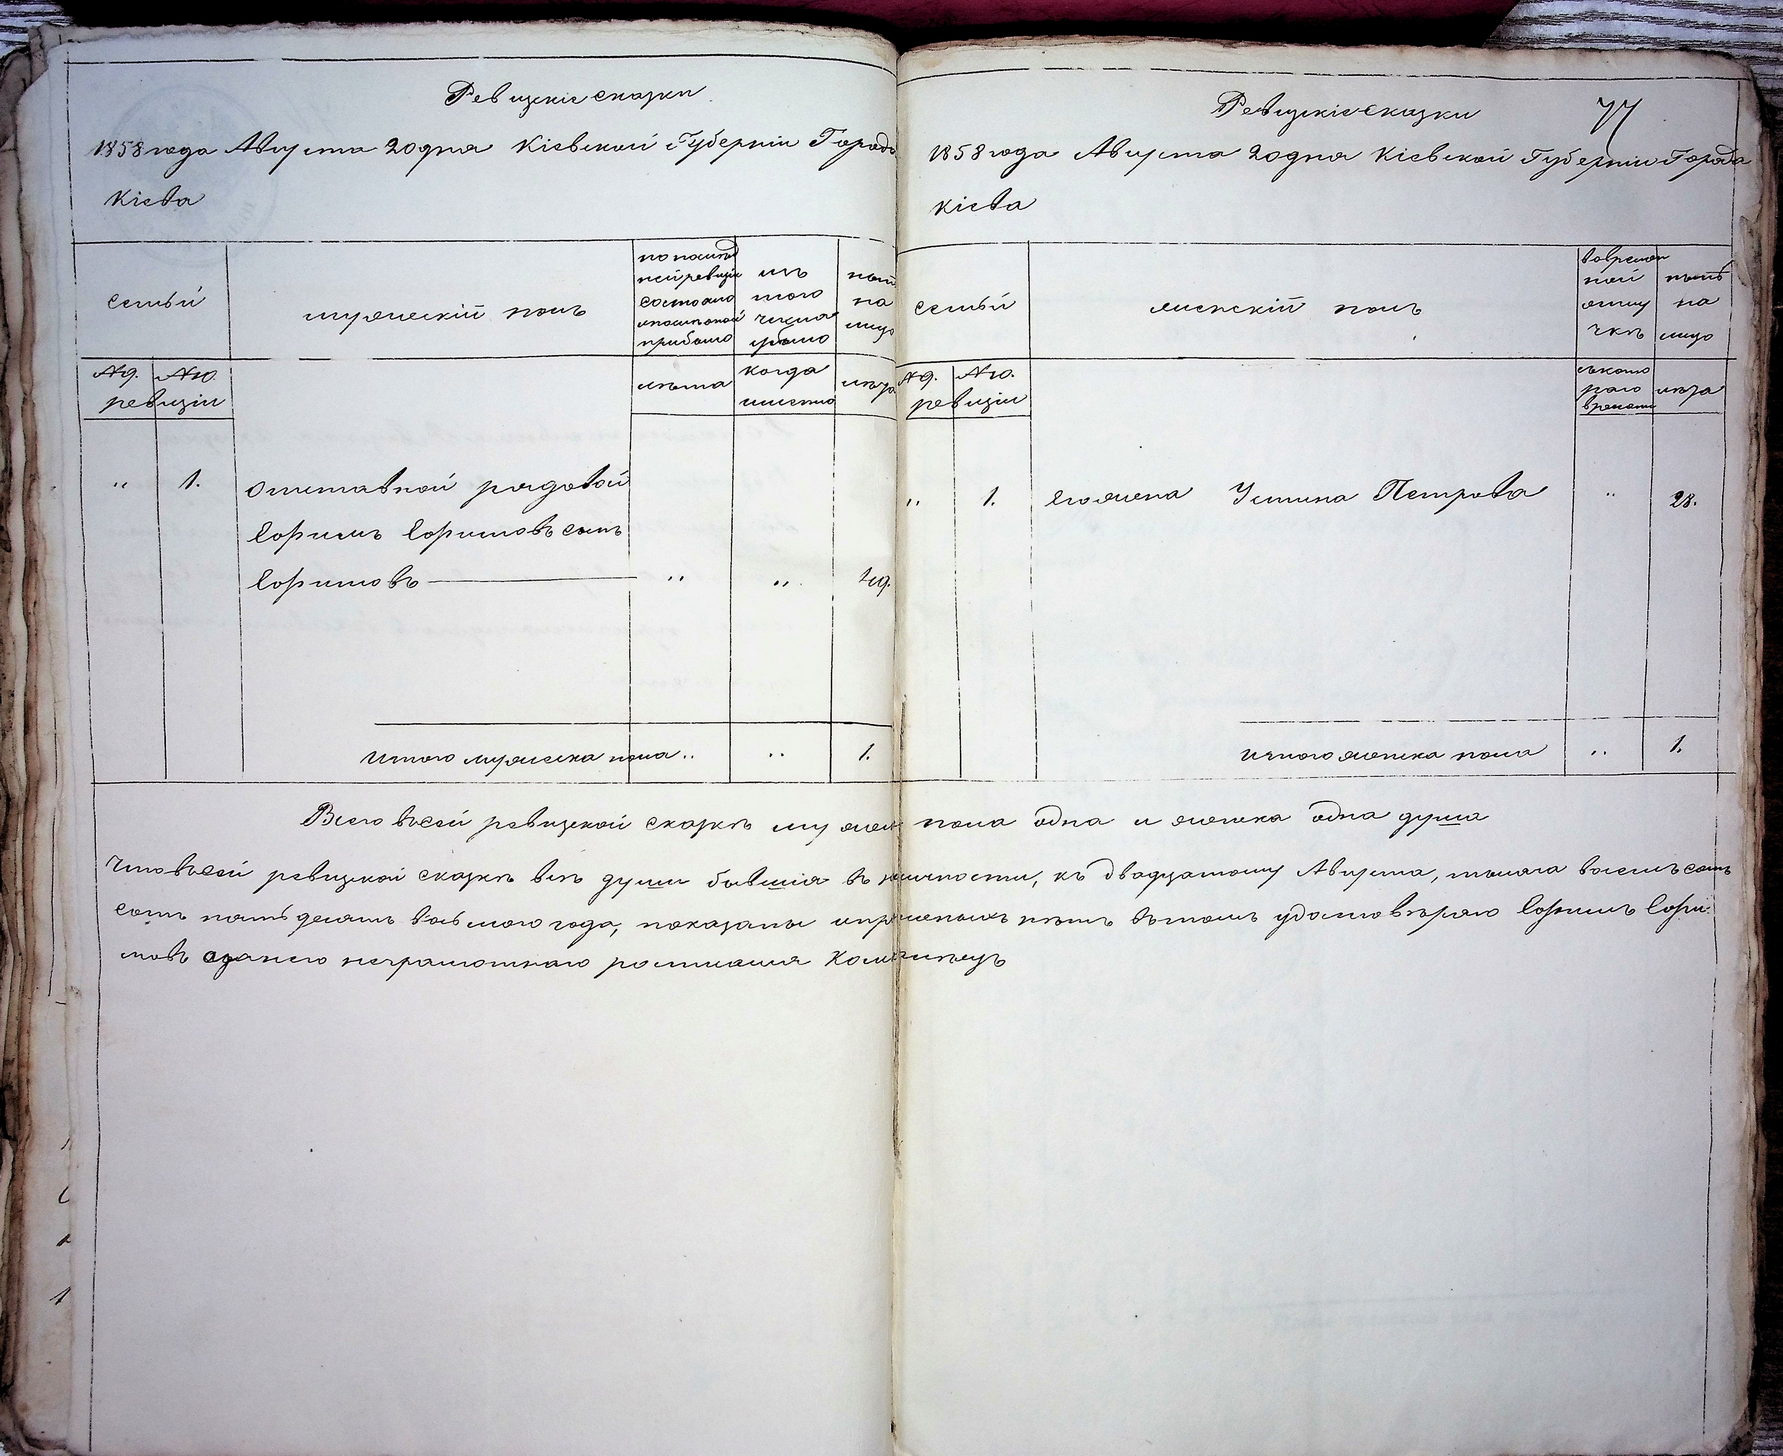 Ревизкіе сказки
1858 года Августа 20 дня Кіевской Губерніи Города
Кіева
семьи
мужескій полъ
по послѣд
ней ревизіи
состояло
и послѣ оной
прибыло
изъ
того
числа
убыло
нынѣ
на
лицо
№ 9.
№ 10.
ревизіи
лѣта
когда
именно
лѣта
„ 1. Отставной рядовой
„ „ 49.
Итого мужеска пола „ „ 1.
Ревизкіе сказки
77
1858 года Августа 20 дня Кіевской Губерніи Города
Кіева
семьи
женскій полъ
во времен
ной
отлу
чкѣ
нынѣ
на
лицо
№ 9.
№ 10.
ревизіи
съ кото
раго
времени
лѣта
„ 1. Его жена Устина Петрова „ 28.
Итого женска пола „ 1.
Всего в сей ревизкой сказкѣ мужеск пола одна и женска одна душа
Что в сей ревизкой сказкѣ всѣ души бывшія въ наличности, къ двадцатому Августа, тысяча восемъ сотъ
сотъ пятьдесятъ восьмого года, показаны и прописныхъ нѣтъ въ томъ удостовѣряю
а за него неграмотнаго росписался